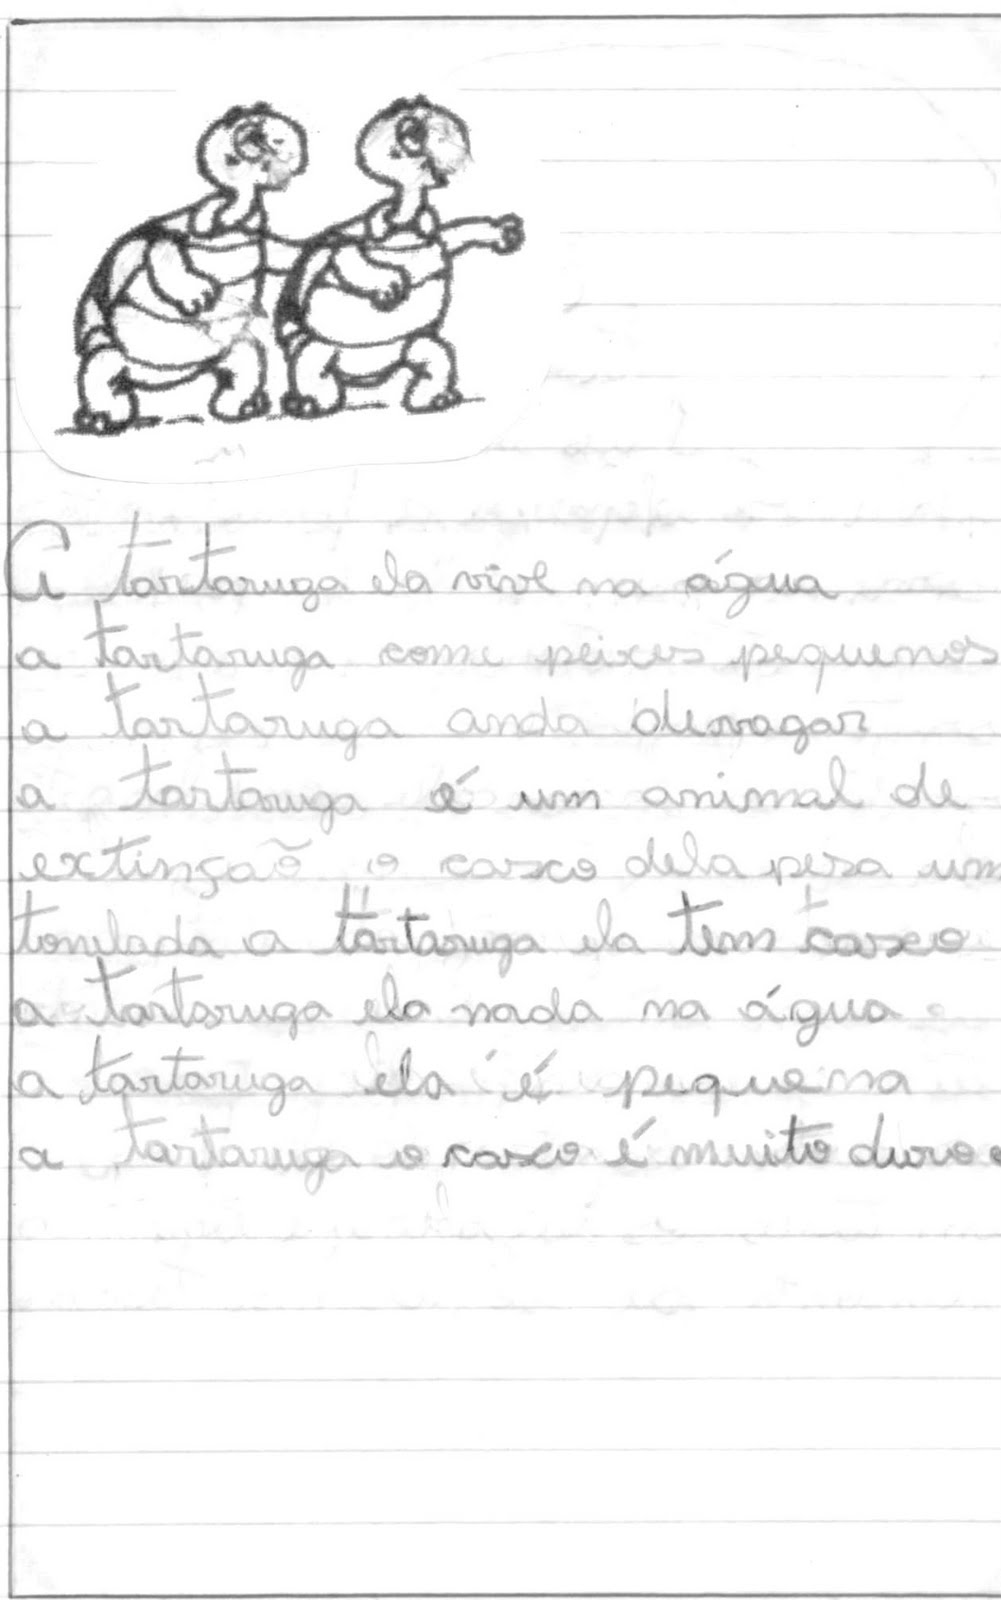 A tartaruga ela vive na água
a tartaruga come peixes pequenos
a tartaruga anda devagar
a tartaruga é um animal de
extinção o casco dela pesa um
tonelada a tartaruga ela tem casco
a tartaruga ela nada na água
a tartaruga ela é pequena
a tartaruga o casco é muito duro